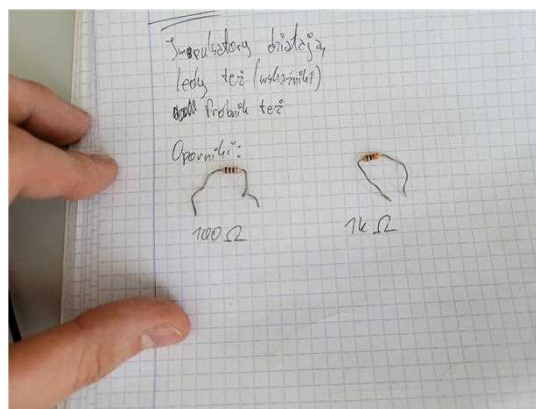 Impulsatory działają,
ledy też (wskaźniki)
Próbnik też
Oporniki:
100 Ω
1k Ω